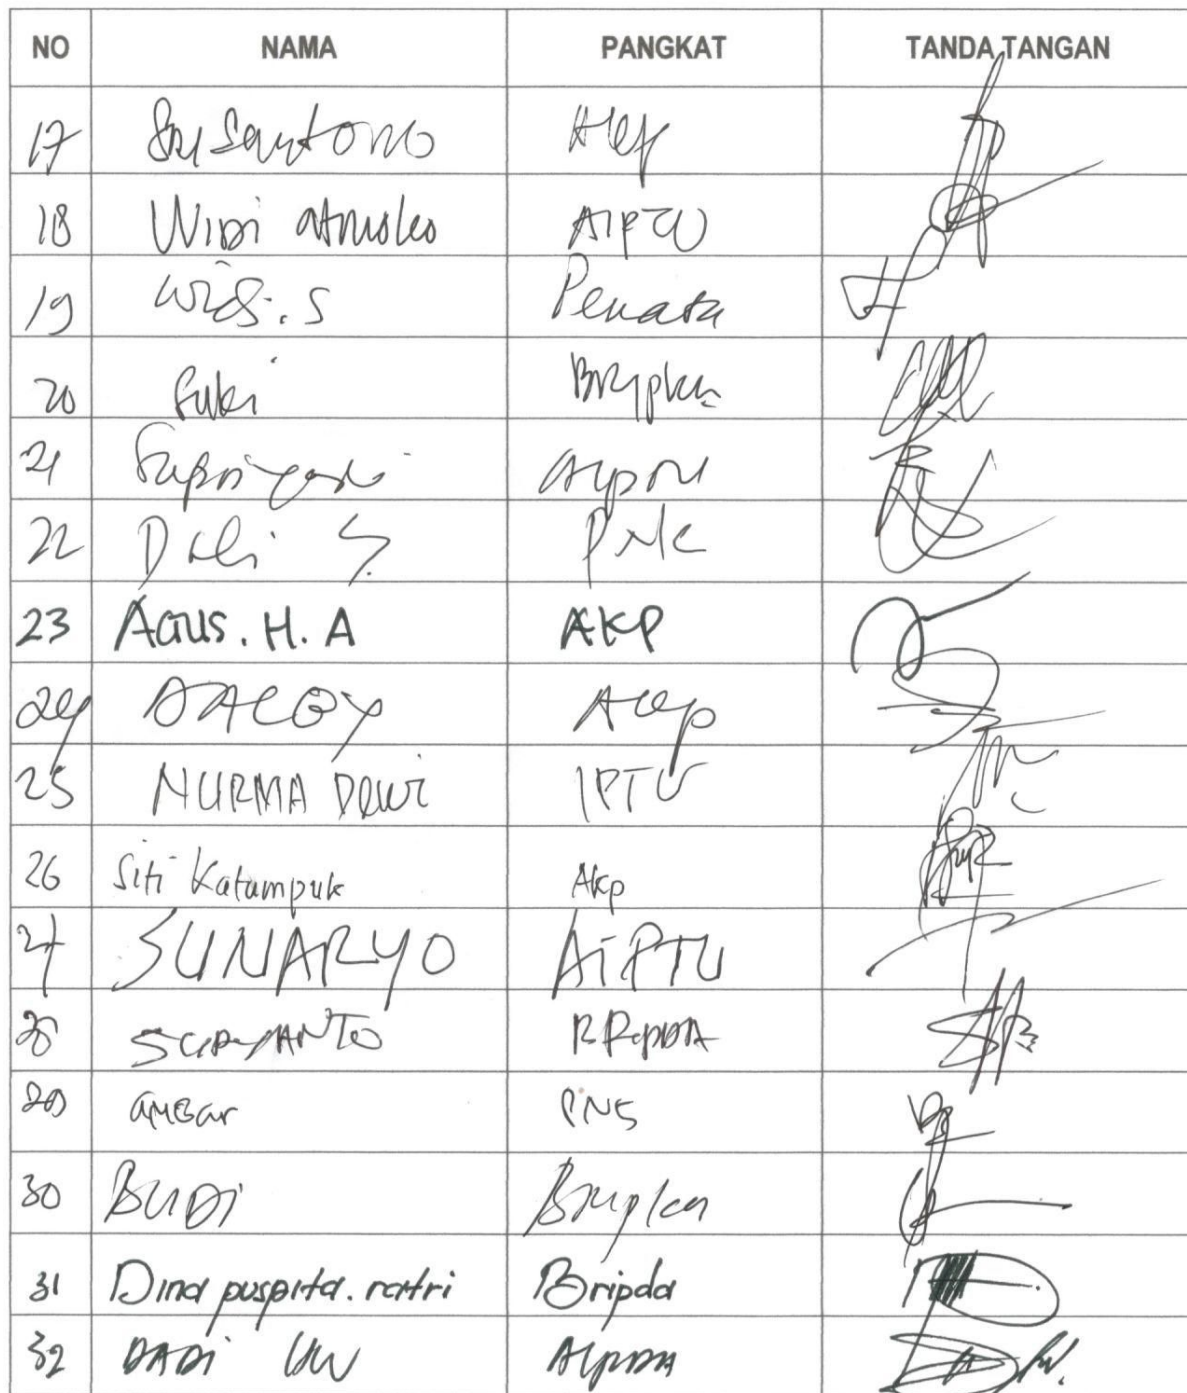 NO NAMA PANGKAT TANDA TANGAN
17 Sri Santono Akp
18 Widi atmoko AIPTU
19 Widi. S Penata
20 Suki Bripka
21 Supriyadi Aiptu
22 D S.
23 AGUS. H. A AKP
24 Akp
25 NURMA DEWI IPTU
26 Siti Katumpuk Akp
27 SUNARYO AiPTU
28 SURYANTO
29 AMBar PNS
30 BUDI Bripka
31 Dina puspita. ratri Bripda
32 DADi AIPDA